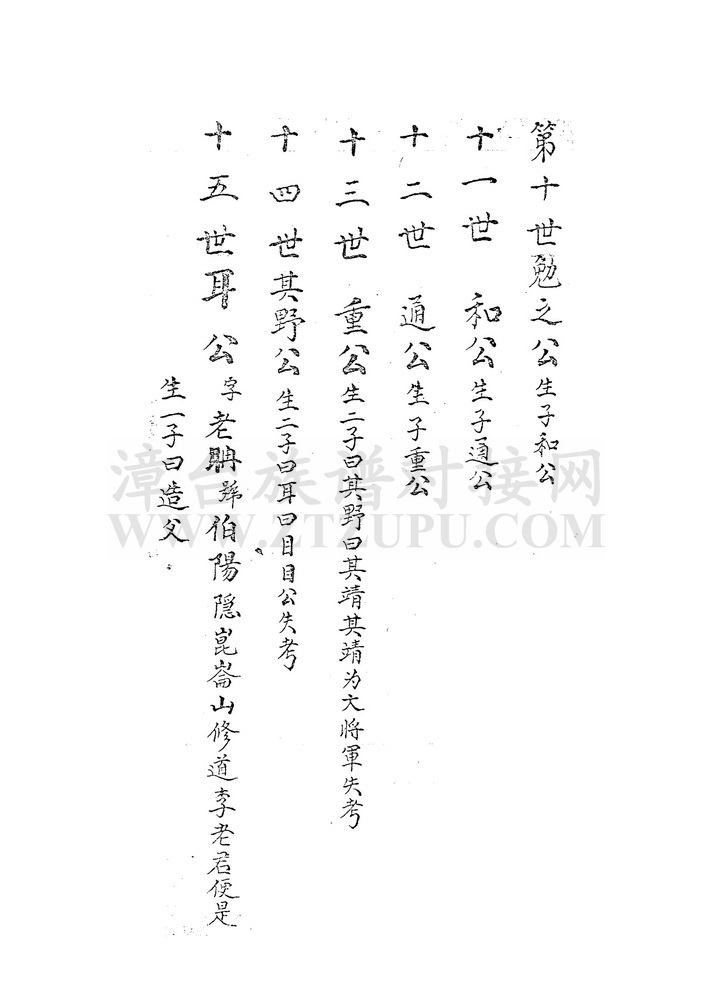 第十世勉之公生子和公
十一世和公生子通公
十二世通公生子重公
十三世重公生二子曰其野曰其靖其靖为大将軍失考
十四世其野公生二子曰耳曰目目公失考
十五世耳公字老聃號伯陽隠崑崙山修道李老君便是
生一子曰造父
漳台族谱对接网
WWW.ZTZUPU.COM